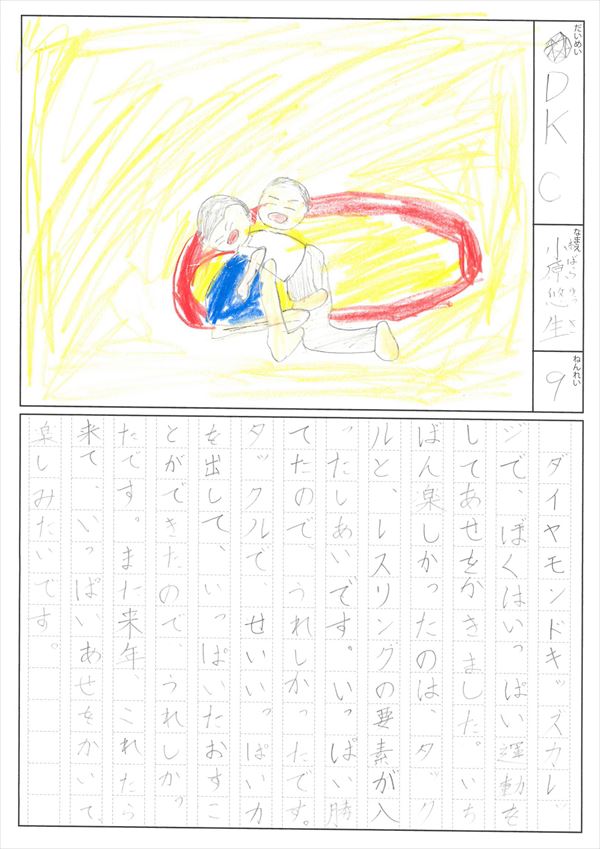 だいめい
DKC
なまえ
小原悠生
ねんれい
9
ダイヤモンドキッズカレッ
ジで、ぼくはいっぱい運動を
してあせをかきました。いち
ばん楽しかったのは、タック
ルと、レスリングの要素が入
ったしあいです。いっぱい勝
てたので、うれしかったです。
タックルで、せいいっぱい力
を出して、いっぱいたおすこ
とができたので、うれしかっ
たです。また来年、これたら
来て、いっぱいあせをかいて、
楽しみたいです。